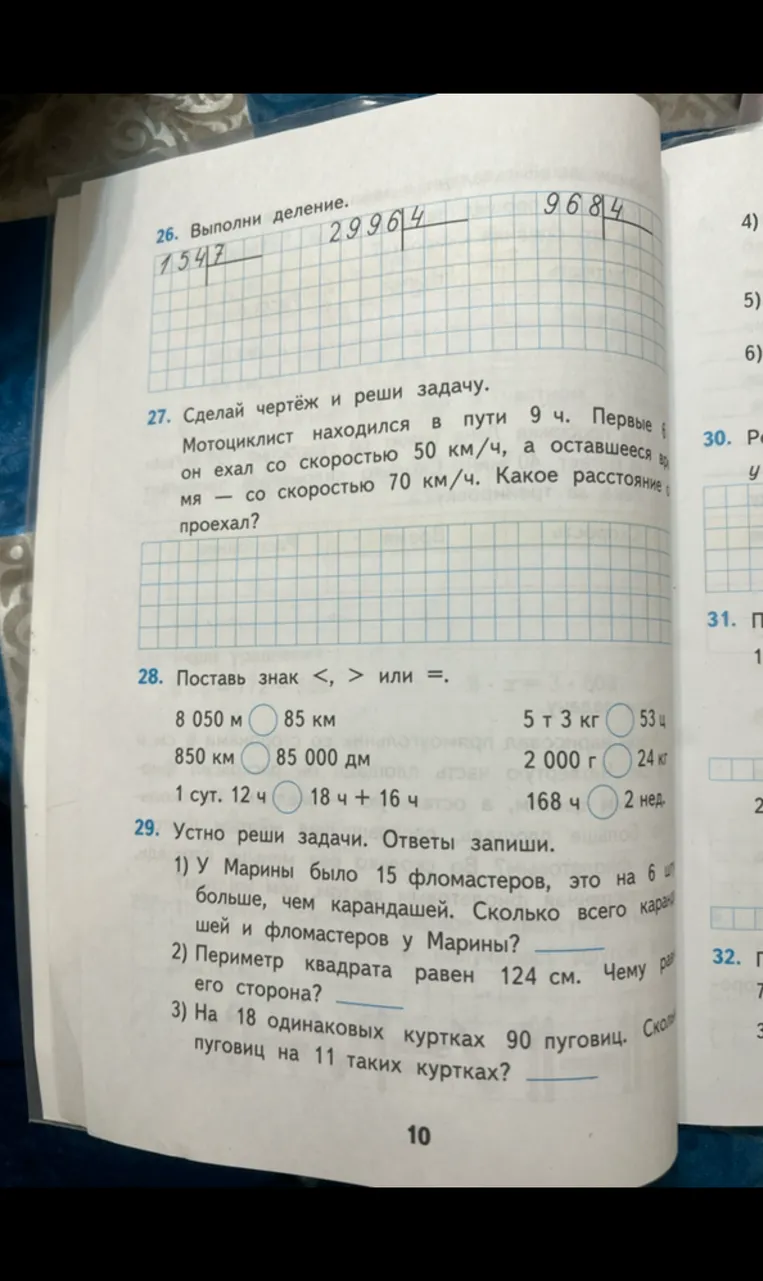 26. Выполни деление.
154 7 2996 4 968 4
27. Сделай чертёж и реши задачу.
Мотоциклист находился в пути 9 ч. Первые 6
он ехал со скоростью 50 км/ч, а оставшееся вре
мя — со скоростью 70 км/ч. Какое расстояние о
проехал?
28. Поставь знак <, > или =.
8 050 м 85 км 5 т 3 кг 53 ц
850 км 85 000 дм 2 000 г 24 кг
1 сут. 12 ч 18 ч + 16 ч 168 ч 2 нед.
29. Устно реши задачи. Ответы запиши.
1) У Марины было 15 фломастеров, это на 6 шт
больше, чем карандашей. Сколько всего каранд
шей и фломастеров у Марины?
2) Периметр квадрата равен 124 см. Чему рав
его сторона?
3) На 18 одинаковых куртках 90 пуговиц. Сколь
пуговиц на 11 таких куртках?
10
4)
5)
6)
30. Р
у
31. П
1
2
32. П
7
3